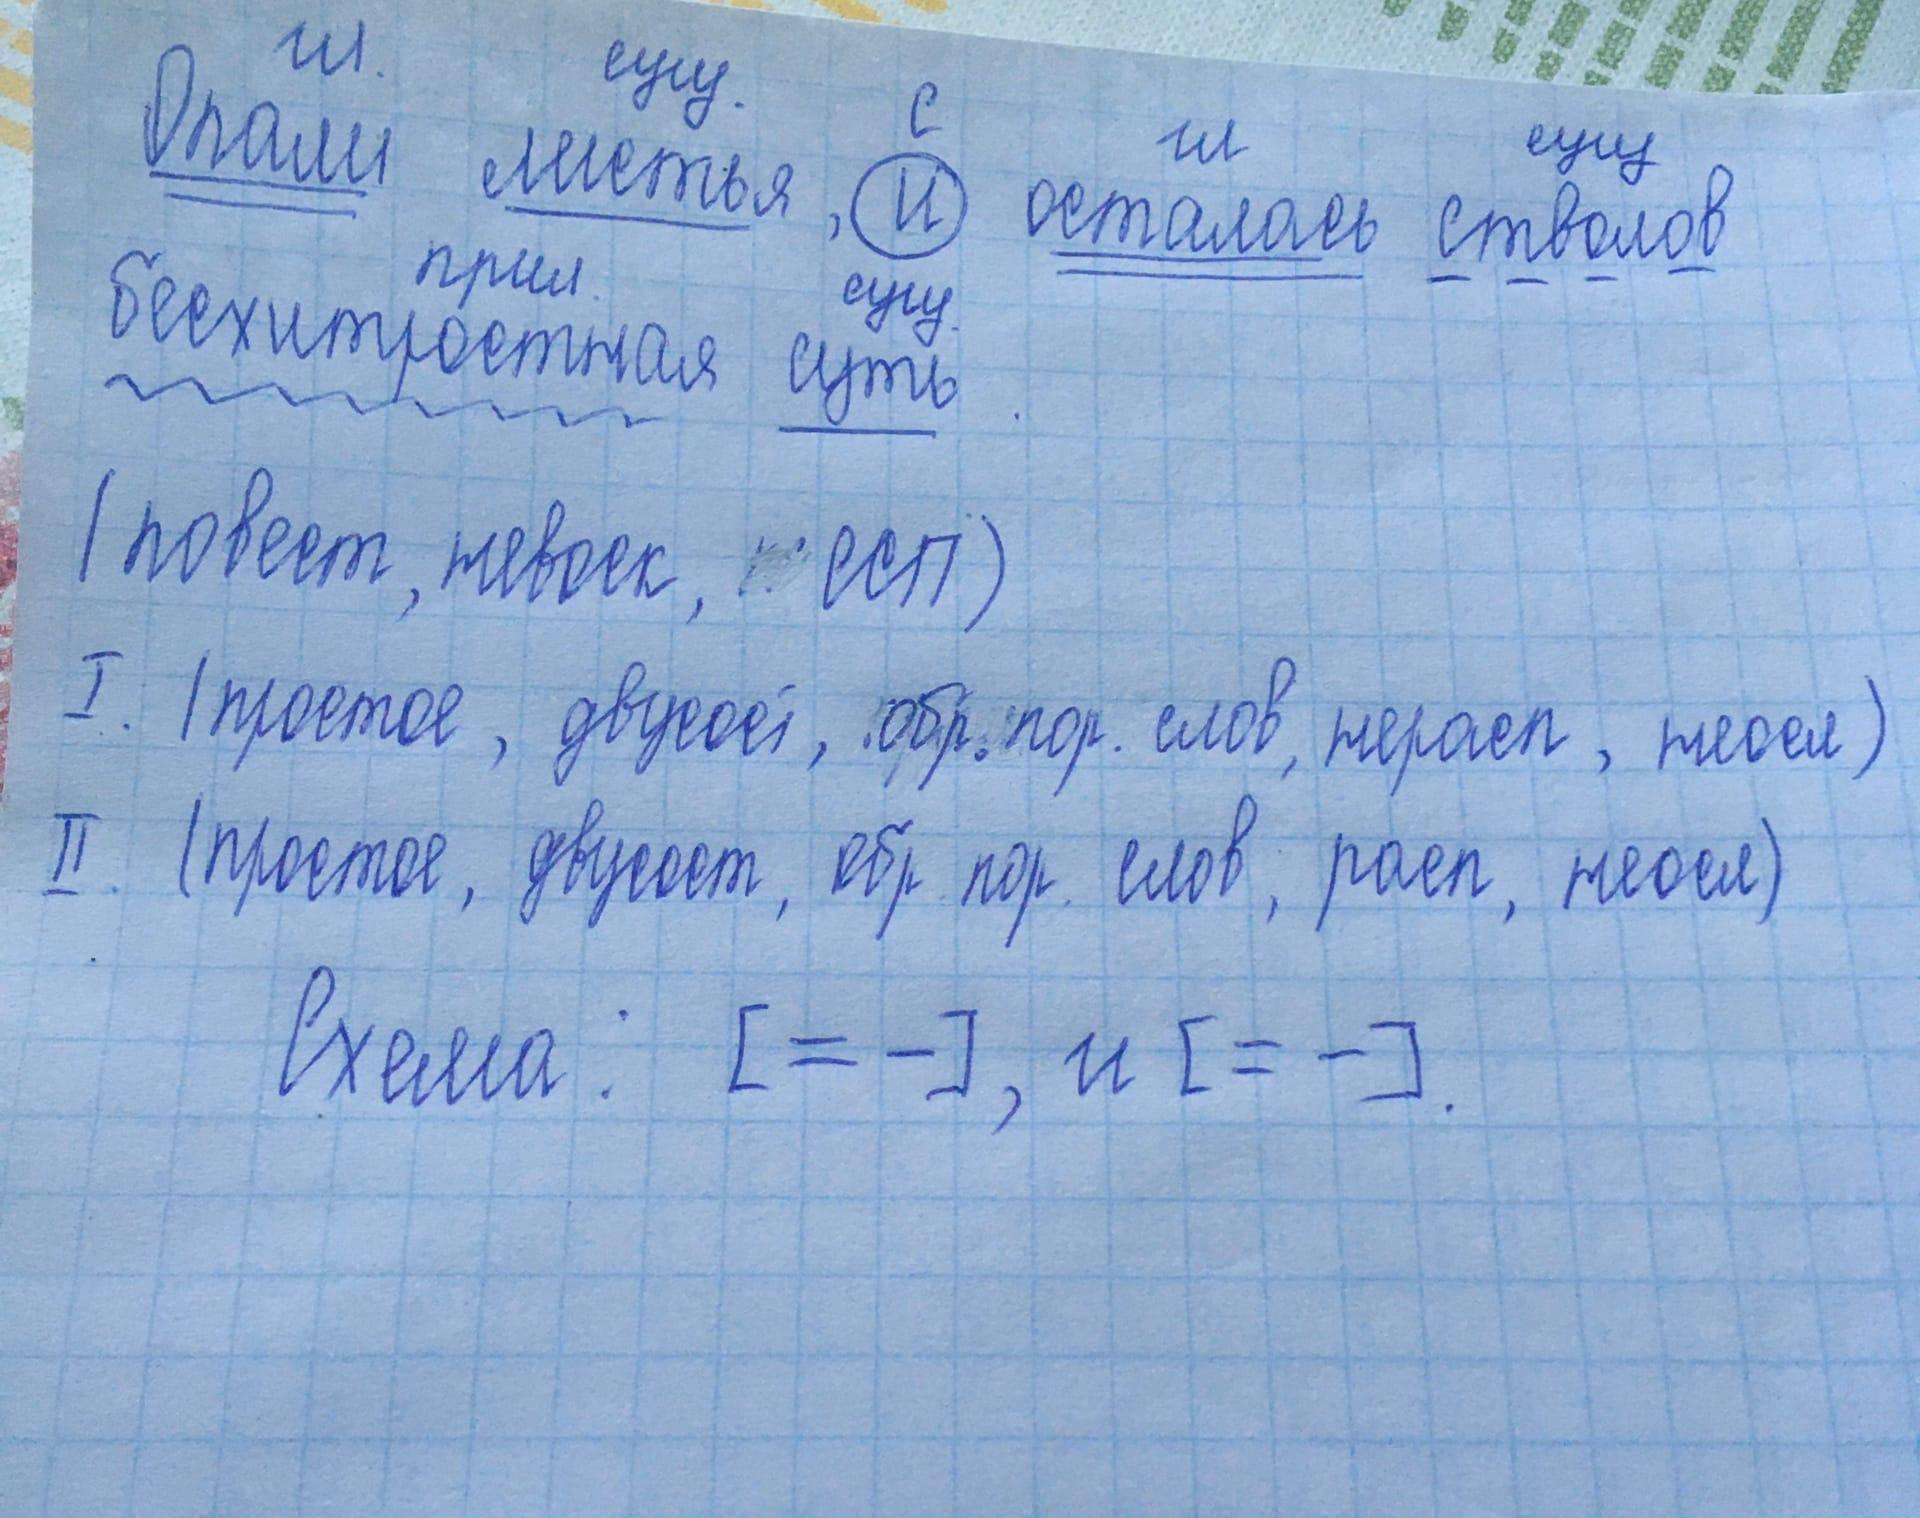 гл. сущ. С гл сущ
Опали листья, и осталась стволов
прил. сущ.
бесхитростная суть.
(повест, невоск, ССП)
I. (простое, двусост, обр. пор. слов, нерасп, неосл)
II. (простое, двусост, обр пор. слов, расп, неосл)
Схема: [= –], и [= –].